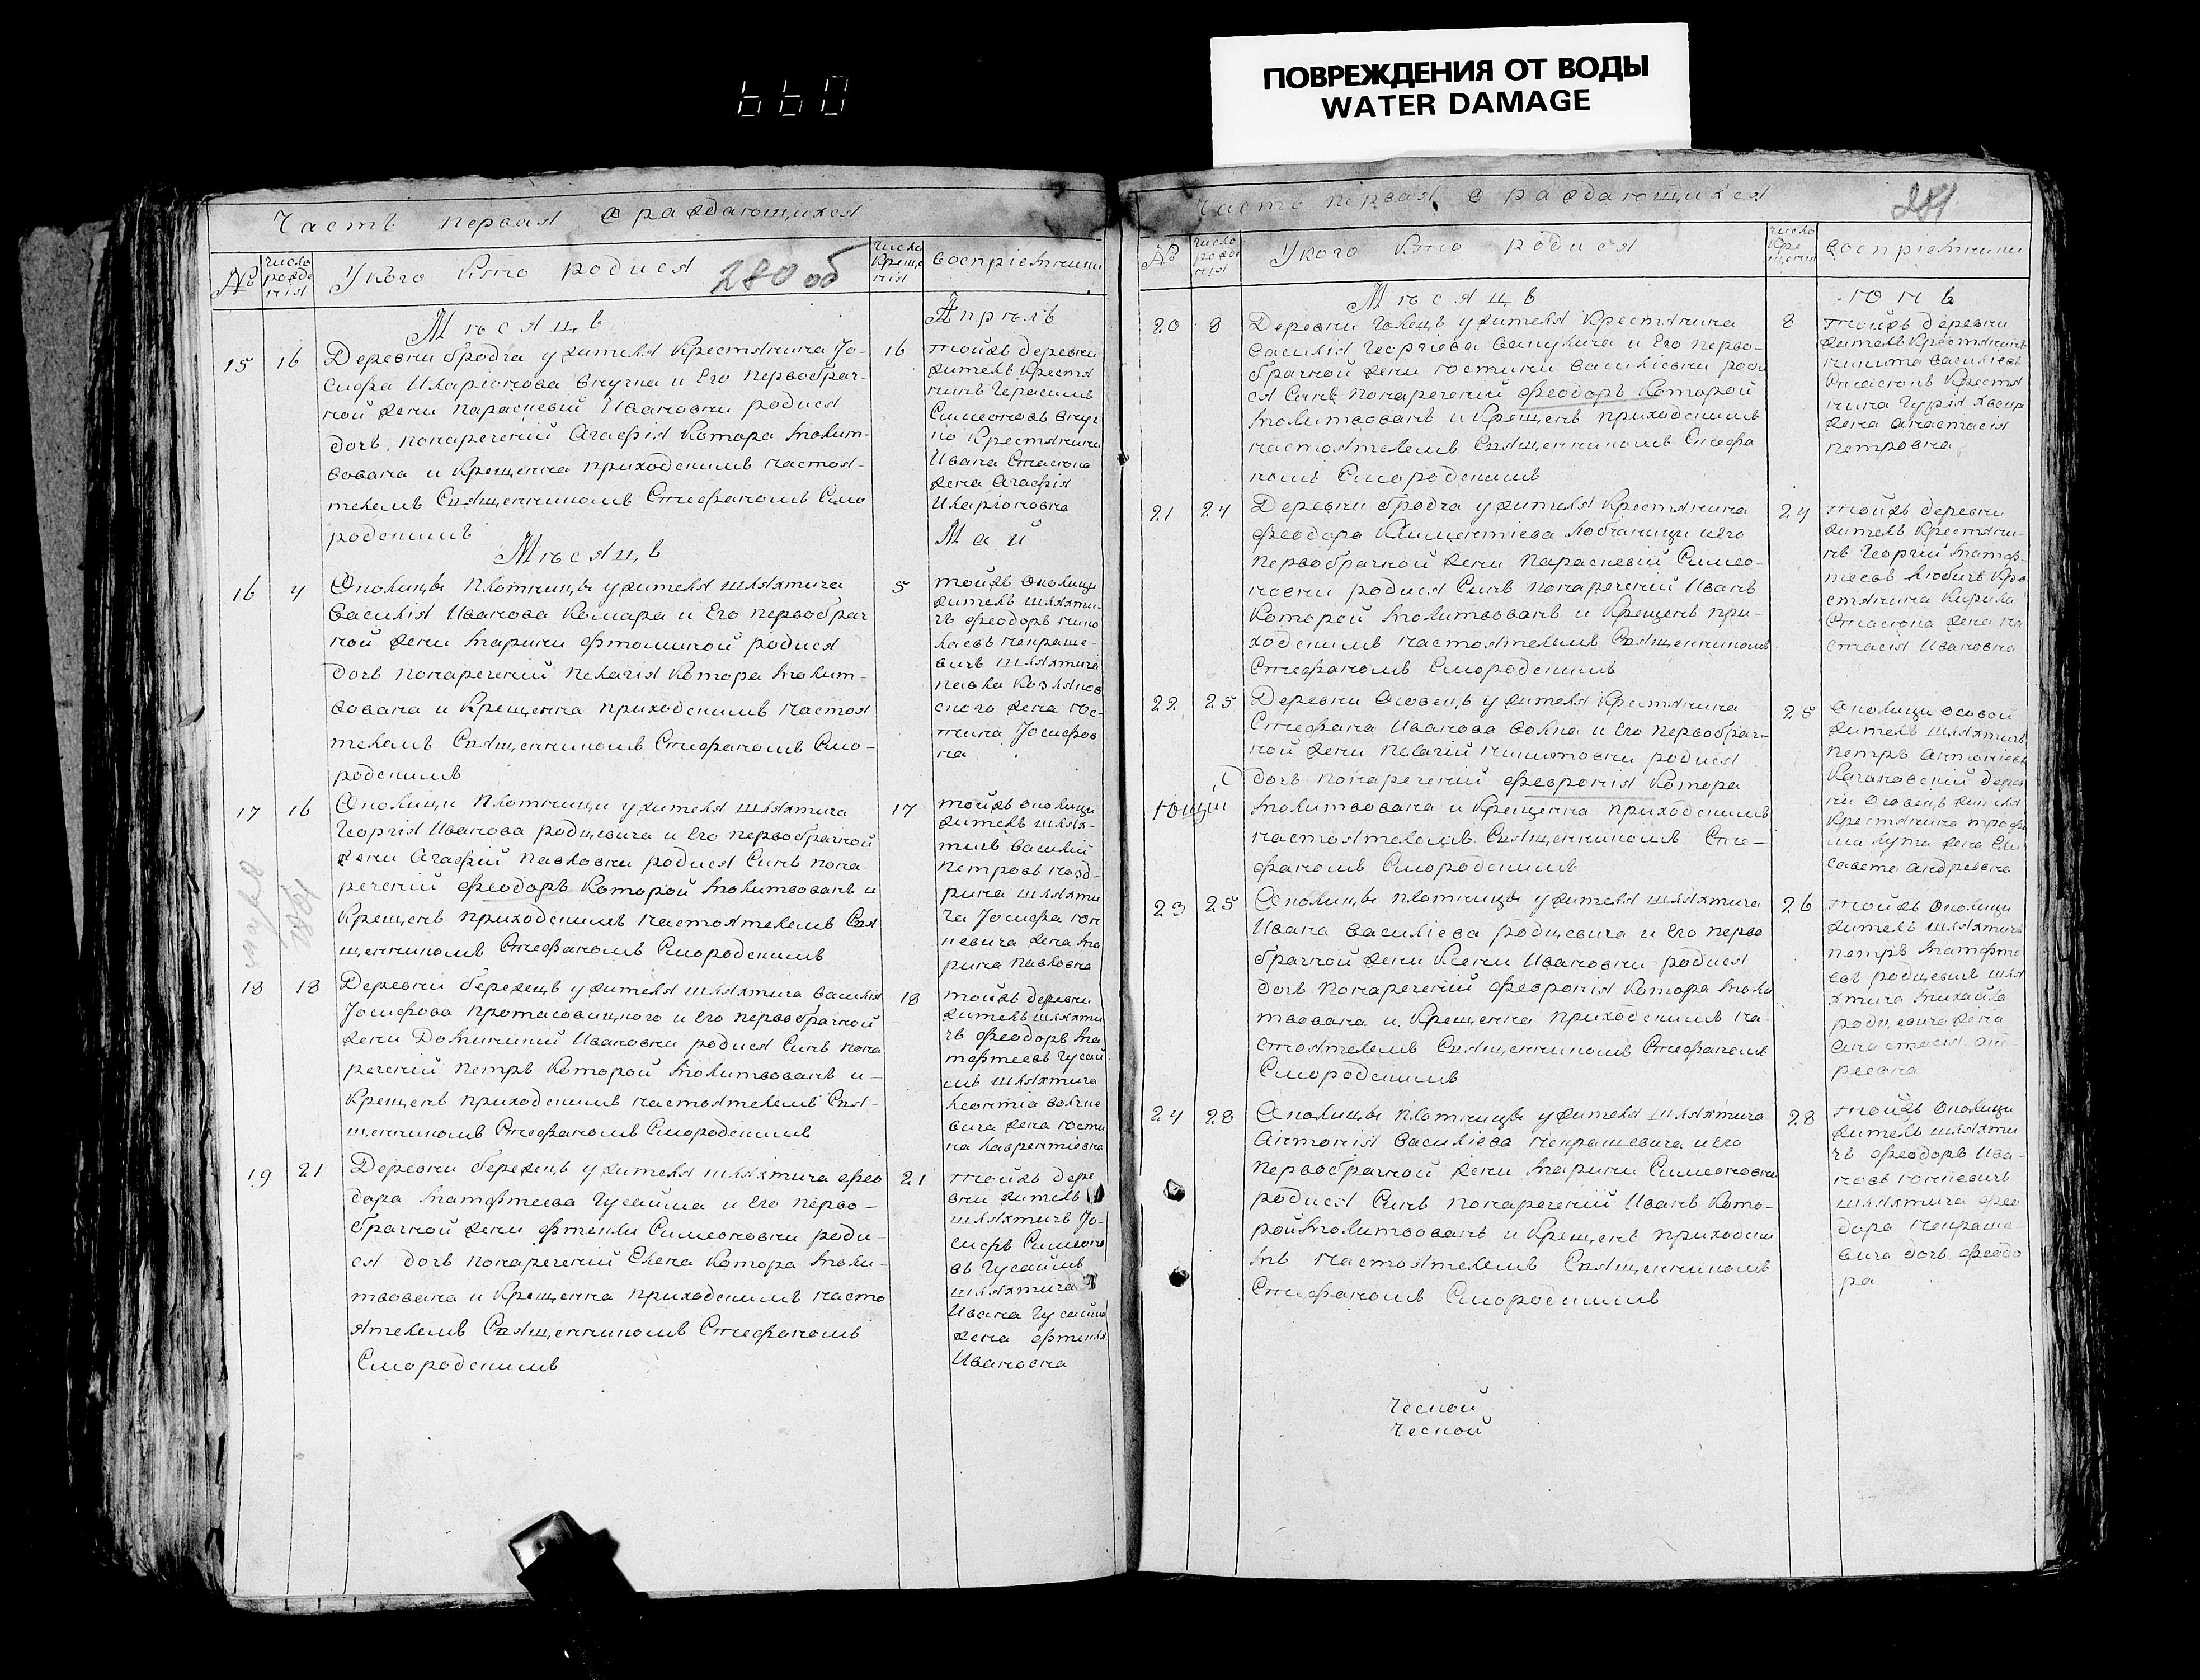 660
ПОВРЕЖДЕНИЯ ОТ ВОДЫ
WATER DAMAGE
Часть первая о раждающихся
№
число рожде нія
Укого Кто родися
280 об
число Креще нія
воспріемники
Месяцъ
Апрель
15 16
Деревни бродча ужителя Крестянина Іо-
сифа Иларіонова внучка и Его первобрач-
ной жени параскевіи Ивановни родися
дочь нонареченій Агафія Котора молит-
вована и Крещенна приходскимъ настоя-
телемъ Священникомъ Стефаномъ Смо
родскимъ
16
тойжъ деревни
житель Крестя
нинъ Герасимъ
Симеоновъ внуч
ко Крестянина
Ивана Стасюка
жена Агафія
Иларіоновна
Месяцъ
Май
16 4
Околицы Плотницы ужителя шляхтича
Василія Иванова Комара и Его первобрач
ной жени марини фтошиной родися
дочь нонареченій Пелагія Котора молит-
вована и Крещенна приходскимъ настоя
телемъ Священникомъ Стефаномъ Смо-
родскимъ
5
тойжъ околици
житель шляхти-
чъ феодоръ нико
лаевъ некраше-
вичъ шляхтича
павла Козляков
ского жена Іус-
тина Іосифов
на
17 16
Околици Плотници ужителя шляхтича
Георгія Иванова родцевича и Его первобрачной
жени Агафіи Павловни родися Синъ нона-
реченій феодоръ Которой молитвованъ и
Крещенъ приходскимъ настоятелемъ Свя
щенникомъ Стефаномъ Смородскимъ
17
тойжъ околици
житель шлях-
тичъ василій
петровъ
шляхти
ча Іосифа
жена ма
рина Павловна
18 18
Деревни бережцъ ужителя шляхтича василія
Іосифова протасовицкого и Его первобрачной
жени Доминикіи Ивановни родися Синъ нона
реченій петръ Которой молитвованъ и-
Крещенъ приходскимъ настоятелемъ Свя-
щенникомъ Стефаномъ Смородскимъ
18
тойжъ деревни
житель шляхти
чъ феодоръ ма
тфтеевъ Гусай
мъ шляхтича
леонтія
вича жена Іусти
на лаврентіевна
19 21
Деревни бережцъ ужителя шляхтича фео
дора матфтеева Гусайма и Его перво-
брачной жени фтекли Симеоновни роди-
ся дочь нонареченій Елена Котора моли-
твована и Крещенна приходскимъ насто
ятелемъ Священникомъ Стефаномъ
Смородскимъ
21
тойжъ дере
вни житель
шляхтичъ Іо-
сифъ Симеоно
въ Гусаймъ
шляхтича
Ивана Гусайма
жена фтекля
Ивановна
Часть первая о раждающихся
281
№
число рожде нія
Укого Кто родися
число Кре щенія
воспріемники
Месяцъ
Іюнь
20 8
Деревни ужителя Крестянина
василія Георгіева и Его перво-
брачной жени Іустини василіевни роди
ся Синъ нонареченій феодоръ Которой
молитвованъ и Крещенъ приходскимъ
настоятелемъ Священникомъ Стефа
номъ Смородскимъ
8
тойжъ деревни
житель Крестянинъ
никита василіевъ
Стасюкъ Кресття
нина Гурія
жена анастасія
петровна
21 24
Деревни бродча ужителя Крестянина
феодора Климентіева лобчаници иего
первобрачной жени параскевіи Симео-
новни родися Синъ нонареченій Иванъ
Которой молитвованъ и Крещенъ при-
ходскимъ настоятелемъ Священникомъ
Стефаномъ Смородскимъ
24
тойжъ деревни
житель Крестяни-
нъ Георгій матф-
теевъ любичъ Кре
стянина Кирила
Стасюка жена на
стасія Ивановна
22 25
Деревни Осовецъ ужителя Крестянина
Стефана Иванова волка и Его первобрач-
ной жени Пелагіи никитовни родися
дочь нонареченій февронія Котора
молитвована и Крещенна приходскимъ
настоятелемъ Священникомъ Сте-
фаномъ Смородскимъ
25
Околици осовой
житель шляхтичъ
петръ антоніевъ
Качановскій дерев
ни Осовецъ жителя
Крестянина трофи
ма лута жена Ели
савета андреевна
23 25
Околицы плотницы ужителя шляхтича
Ивана василіева родцевича и Его перво
брачной жени Ксени Ивановни родися
дочь нонареченій февронія Котора моли
твована и Крещенна приходскимъ на-
стоятелемъ Священникомъ Стефаномъ
Смородскимъ
26
тойжъ околици
житель шляхтичъ
петръ матфте
евъ родцевичъ шля
хтича михайла
родцевича жена
анастасія анд-
реевна
24 28
Околицы плотницы ужителя шляхтича
антонія василіева некрашевича иего
первобрачной жени марини Симеоновни
родися Синъ нонареченій Иванъ Кото-
рой молитвованъ и Крещенъ приходски
мъ настоятелемъ Священникомъ
Стефаномъ Смородскимъ
28
тойжъ околици
житель шляхти
чъ феодоръ Ива-
новъ
шляхтича фео
дора некраше-
вича дочь феодо
ра
Чеснои
Чеснои